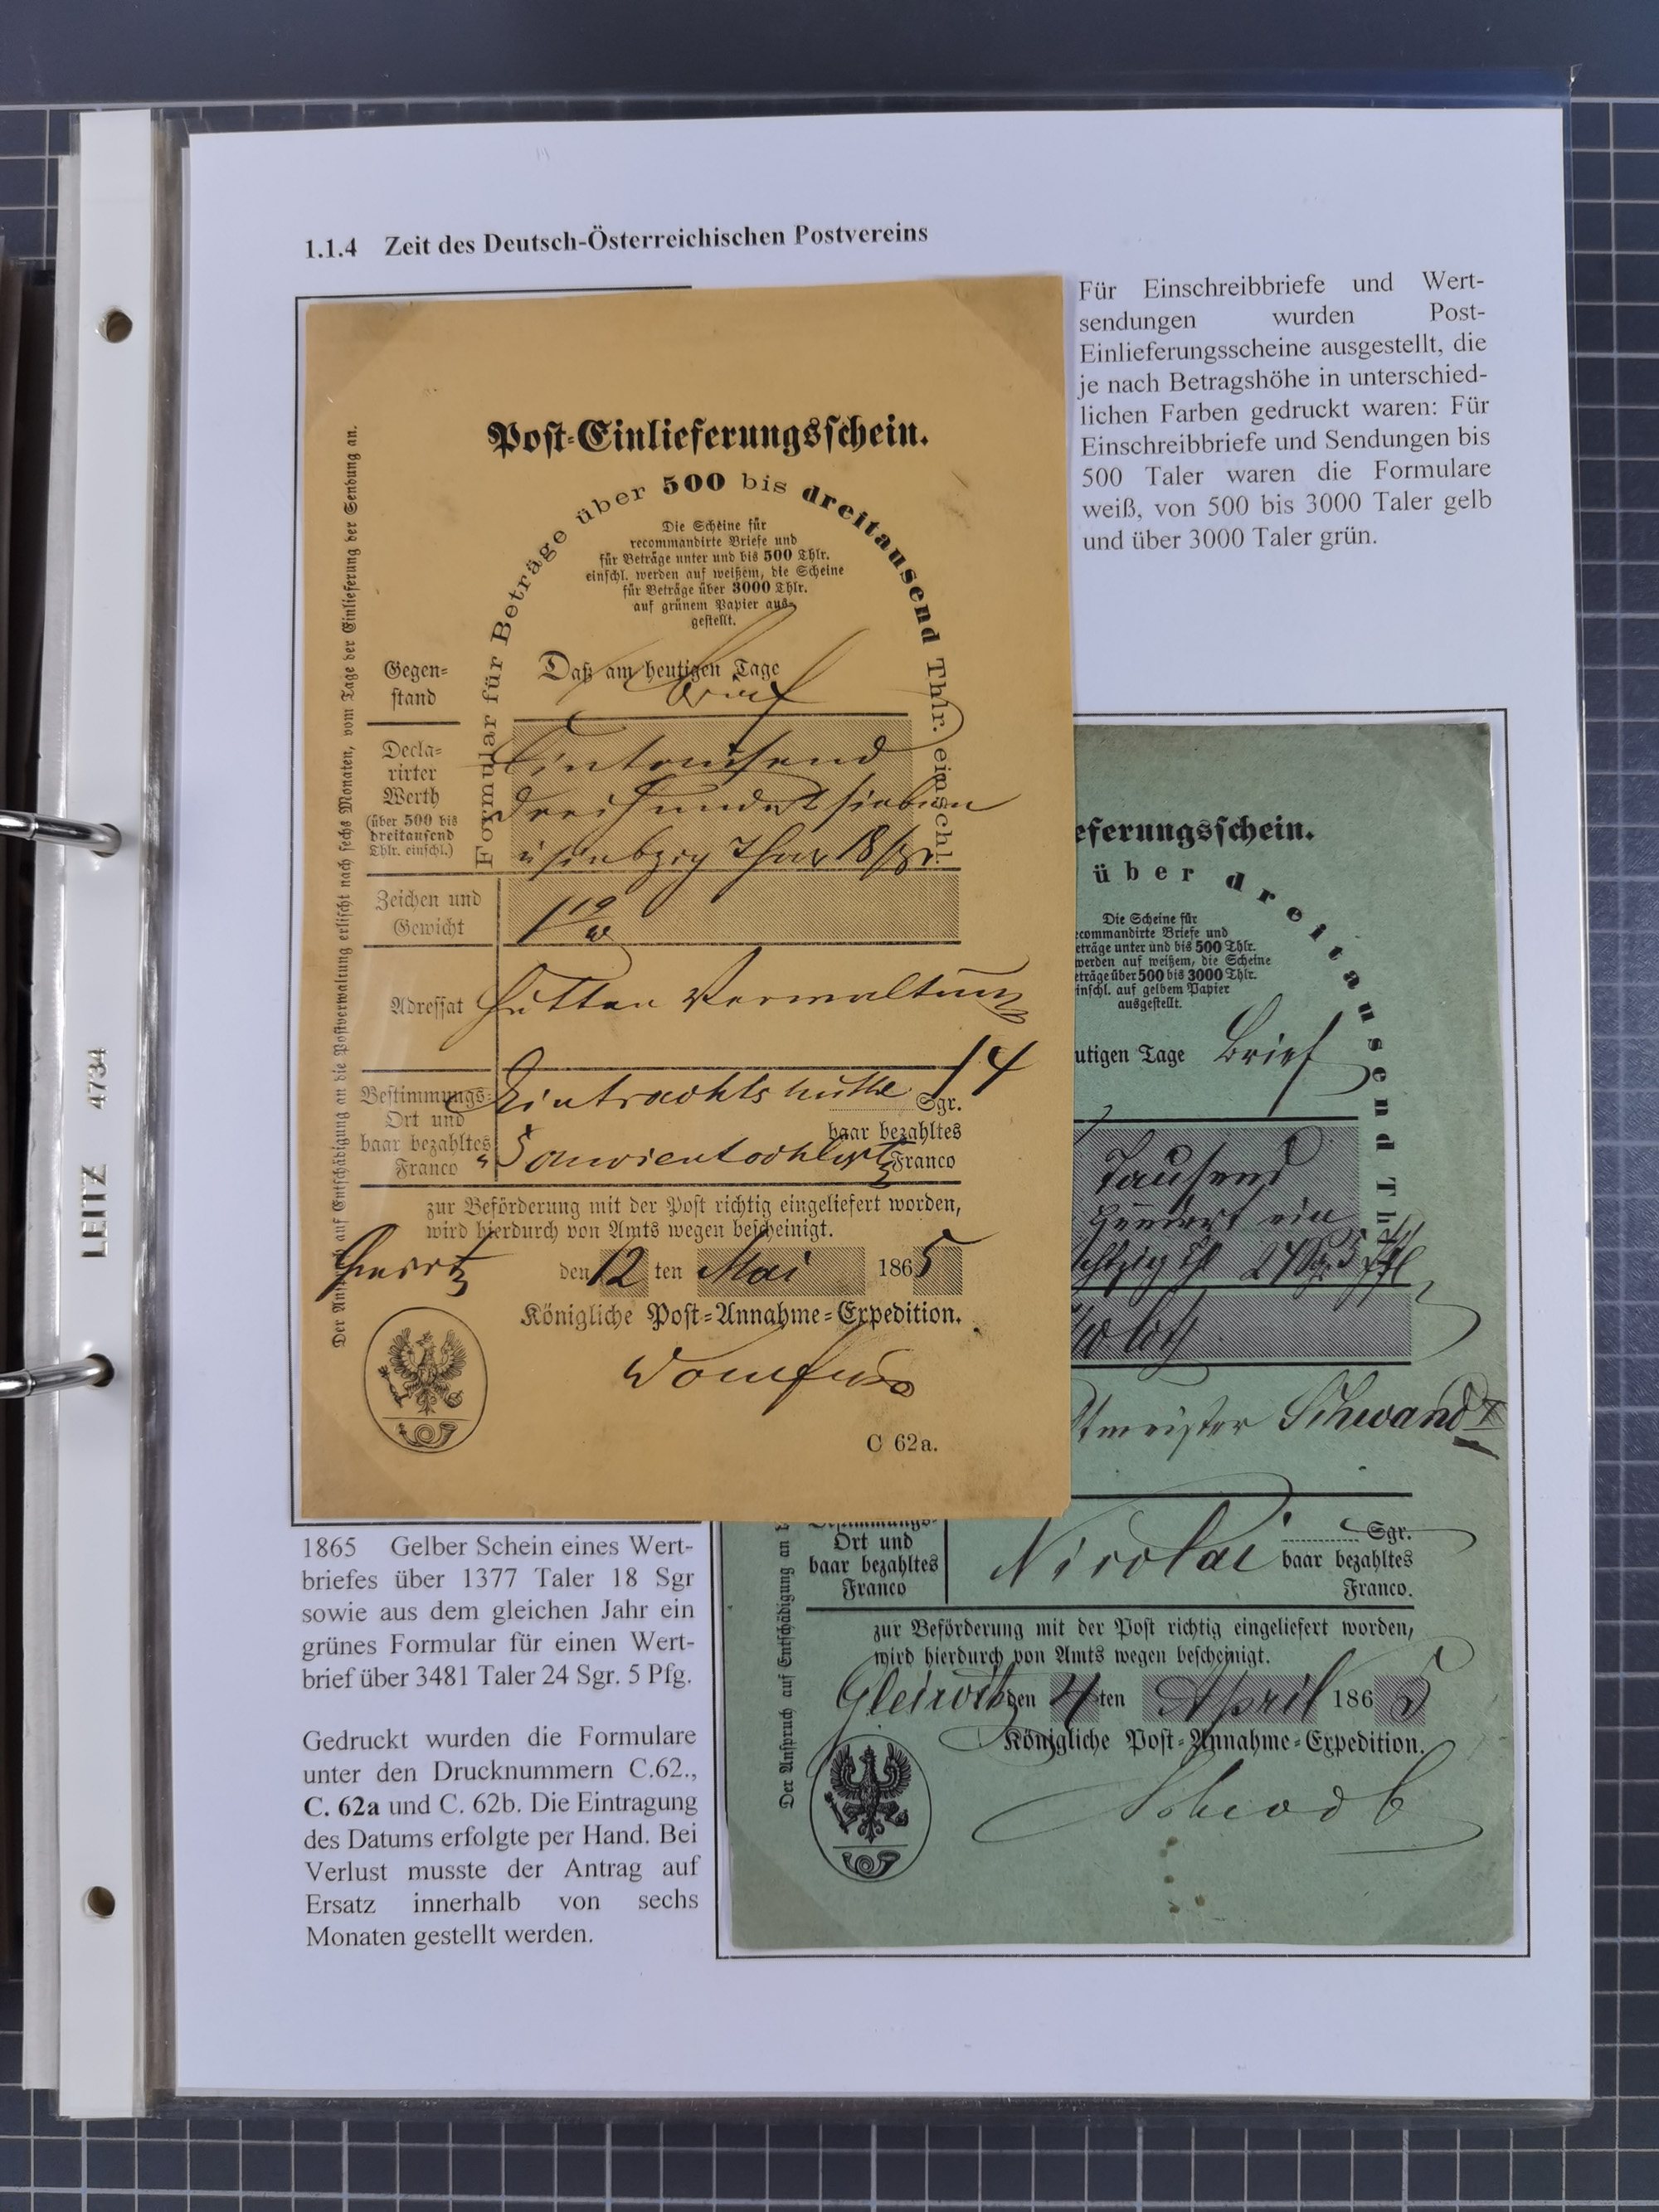 1.1.4 Zeit des Deutsch-Österreichischen Postvereins
Für Einschreibbriefe und Wert-
sendungen wurden Post-
Einlieferungsscheine ausgestellt, die
je nach Betragshöhe in unterschied-
lichen Farben gedruckt waren: Für
Einschreibbriefe und Sendungen bis
500 Taler waren die Formulare
weiß, von 500 bis 3000 Taler gelb
und über 3000 Taler grün.
Post-Einlieferungsschein.
Formular für Beträge über 500 bis dreitausend Thlr. einschl.
Die Scheine für
recommandirte Briefe und
für Beträge unter und bis 500 Thlr.
einschl. werden auf weißem, die Scheine
für Beträge über 3000 Thlr.
auf grünem Papier aus-
gestellt.
Gegen-
stand
Daß am heutigen Tage
Brief
Decla-
rirter
Werth
(über 500 bis
dreitausend
Thlr. einschl.)
Eintausend
dreihundert sieben
u siebzig Thlr 18 sgr.
Zeichen und
Gewicht
Adressat
Hütten Verwaltung
Bestimmungs-
Ort und
baar bezahltes
Franco
Eintrachtshütte
14
Sgr.
baar bezahltes
Franco
zur Beförderung mit der Post richtig eingeliefert worden,
wird hierdurch von Amts wegen bescheinigt.
den 12 ten Mai 1865
Königliche Post-Annahme-Expedition.
C 62a.
Der Anspruch auf Entschädigung an die Postverwaltung erlischt nach sechs Monaten, vom Tage der Einlieferung der Sendung an.
eferungsschein.
über dreitausend Thlr.
Die Scheine für
ecommandirte Briefe und
eträge unter und bis 500 Thlr.
werden auf weißem, die Scheine
eträge über 500 bis 3000 Thlr.
inschl. auf gelbem Papier
ausgestellt.
utigen Tage Brief
Tausend
hundert ein
achtzig Thl 24 Sgr 5 Pf
Loth
tmeister Schwand
Bestimmungs-
Ort und
baar bezahltes
Franco
Nicolai
Sgr.
baar bezahltes
Franco.
zur Beförderung mit der Post richtig eingeliefert worden,
wird hierdurch von Amts wegen bescheinigt.
Gleiwitz den 4 ten April 1865
Königliche Post-Annahme-Expedition.
Der Anspruch auf Entschädigung an
1865 Gelber Schein eines Wert-
briefes über 1377 Taler 18 Sgr
sowie aus dem gleichen Jahr ein
grünes Formular für einen Wert-
brief über 3481 Taler 24 Sgr. 5 Pfg.
Gedruckt wurden die Formulare
unter den Drucknummern C.62.,
C. 62a und C. 62b. Die Eintragung
des Datums erfolgte per Hand. Bei
Verlust musste der Antrag auf
Ersatz innerhalb von sechs
Monaten gestellt werden.
LEITZ 4734